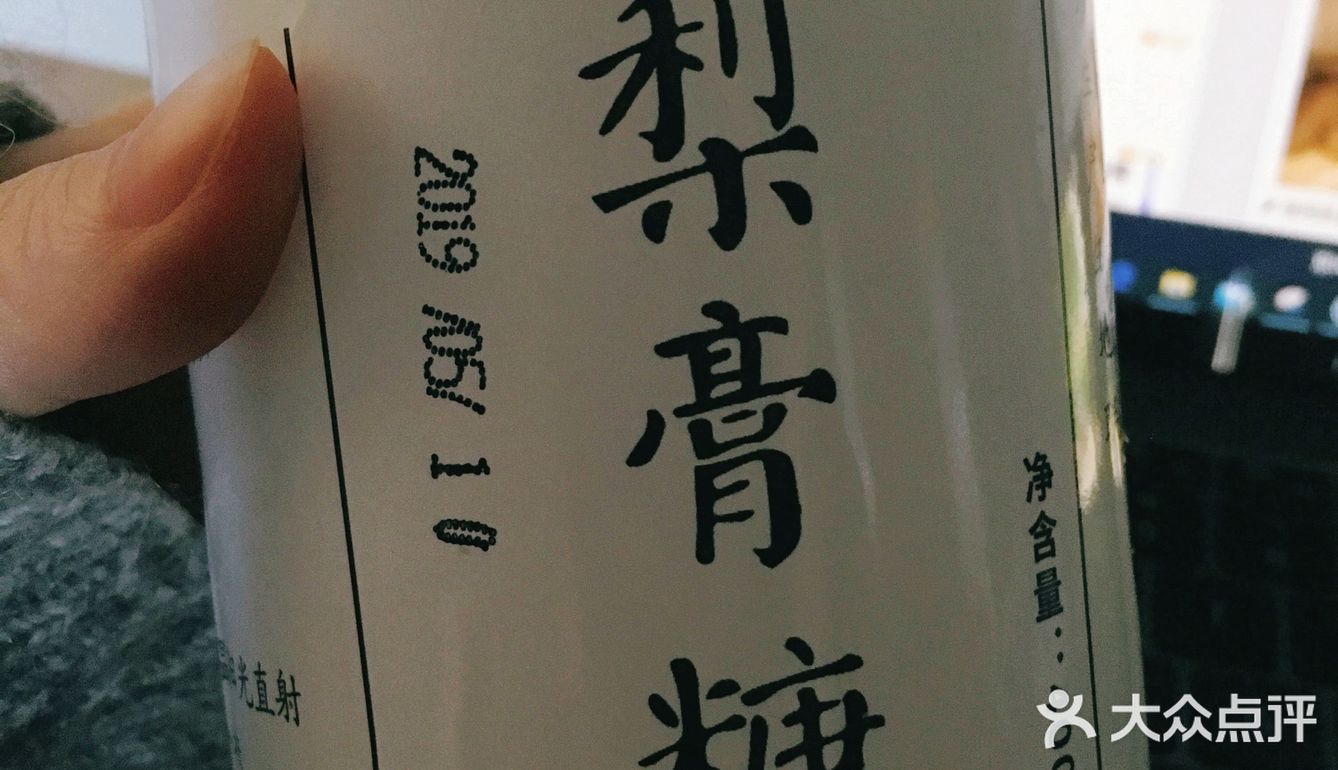 梨膏糖
2019/05/10
净含量:
光直射
大众点评